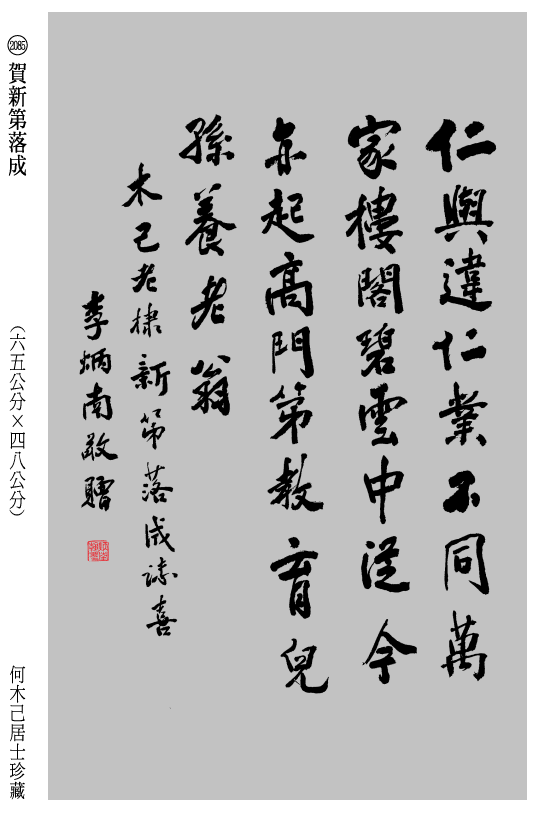 仁與違仁業不同萬
家樓閣碧雲中從今
亦起高門第教育兒
孫養老翁
木己老棣新第落成誌喜
李炳南敬贈
2085 賀新第落成
（六五公分×四八公分）
何木己居士珍藏